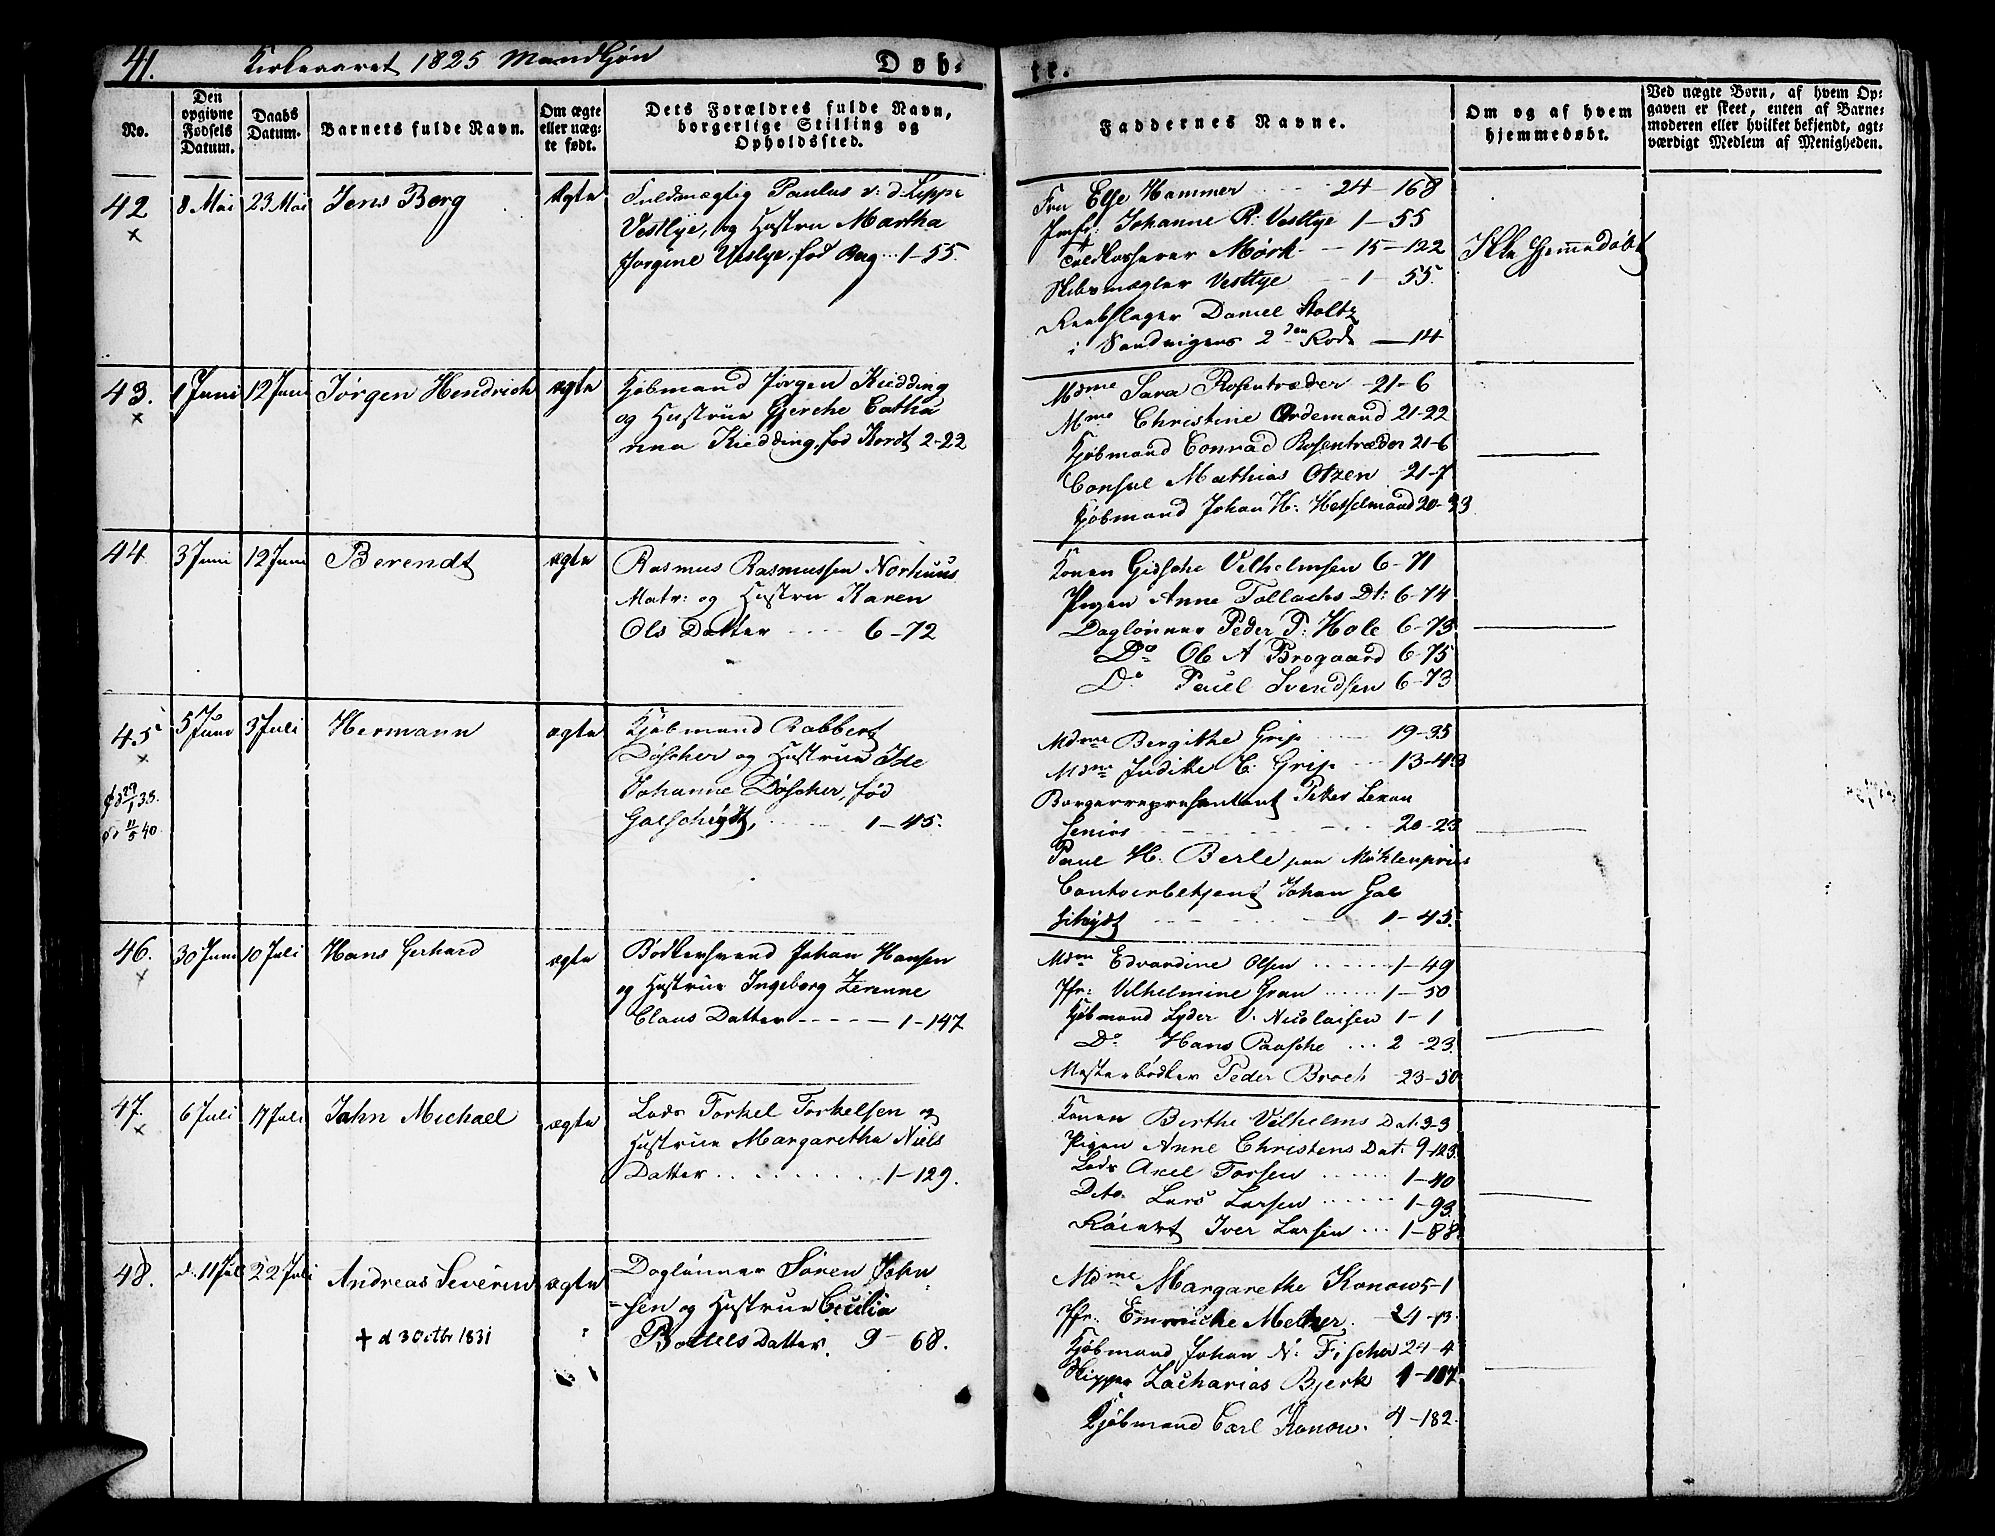 41.
Kirkeaaret 1825 Mandkjøn
Døb-
te.
No.
Den opgivne Fødsels Datum.
Daabs Datum.
Barnets fulde Navn.
Om ægte eller uægte født.
Dets Forældres fulde Navn, borgerlige Stilling og Opholdssted.
Faddernes Navne.
Om og af hvem hjemmedøbt.
Ved uægte Børn, af hvem Opgaven er skeet, enten af Barnemoderen eller hvilket bekjendt, agtværdigt Medlem af Menigheden.
42 8 Mai 23 Mai Jens Berg ægte
Fuldmægtig Paulus v: d. Lippe
Vestlye, og Hustru Martha
Jørgine Vestlye, fød Berg 1-55.
Fru Else Hammer 24-168
Jmfr: Johanne R. Vestlye 1-55
Toldkasserer Mørk 15-122
Skibsmægler Vestlye 1-55.
Reebslager Daniel Stoltz
i Sandvigens 2den Rode 14
Ikke Hjemmedøbt
43. 1 Juni 12 Juni Jørgen Hendrich ægte
Kjøbmand Jørgen Kiedding
og Hustrue Gjerche Catha
rina Kiedding, fød Kordt 2-22
Mdme Sara Rosentræder 21-6
Mme Christine Ordemand 21-22
Kjøbmand Conrad Rosentræder 21-6
Consul Mathias Otzen 21-7
Kjøbmand Johan H: Hesselmand 20-33
44 3 Juni 12 Juni Berendt ægte
Rasmus Rasmussen Norhuus
Matr: og Hustru Karen
Ols Datter 6-72
Konen Gidsche Vilhelmsen 6-71
Pigen Anne Tollachs Dt: 6-74
Daglønner Peder P: Hole 6-75
Do Ole A Brogaard 6-75
Do Paul Svendsen 6-73
45 5 Juni 3 Juli Hermann ægte
Kjøbmand Robbert
Døscher og Hustrue Ide
Johanne Døscher, fød
Galschiødt, 1-45.
29/1 35.
11/5 40
Mdme Bergithe Grip 19-35
Mdme Judithe C: Grip 13-43
Borgerrepresentant Peter
Senior 20-23
Paul H. Berle paa Møhlenpriis
Contoirbetjent Johan Gal
schiødt 1-45.
46. 30 Juni 10 Juli Hans Gerhard ægte
Bødkersvend Johan Hansen
og Hustrue Ingeborg Zerenne
Claus Datter 1-147
Mdm Edvardine Olsen 1-49
Jfr: Vilhelmine Gran 1-50
Kjøbmand Lyder V. Nicolaisen 1-1
Do Hans Paasche 2-23.
Mesterbødker Peder Broch 23-50
47. 6 Juli 17 Juli John Michael ægte
Lods Torkel Torkelsen og
Hustrue Margaretha Niels
Datter 1-129.
Konen Berthe Vilhelms Dat: 3-3
Pigen Anne Christens Dat: 9-123.
Lods Axel Torsen 1-40
Dito. Lars Larsen 1-93.
Røiert Iver Larsen 1-88.
48. d. 11 Jul 22 Juli Andreas Severin ægte
† d 3 Octbr 1831
Daglønner Søren John
=sen og Hustrue Cecilia
Bottels Datter. 9-68.
Mdme Margarethe Konow 5-1
Jfr: Emmiche Meltzer. 24-13.
Kjøbmand Johan N: Fischer 24-4
Skipper Zacharias Bjerk 1-187.
Kjøbmand Carl Konow. 4-182.